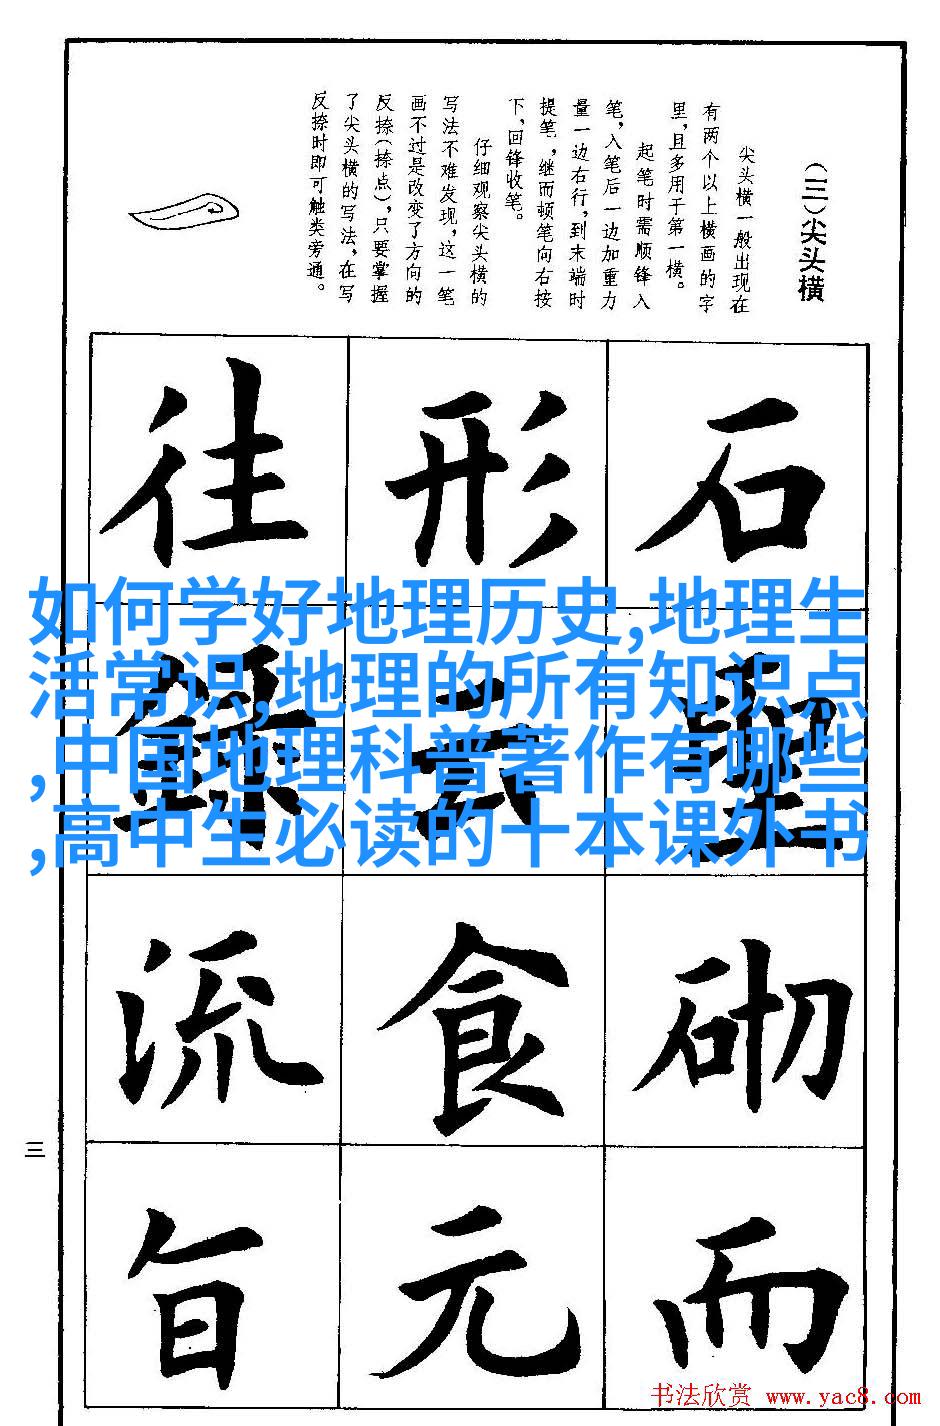 (三)尖头横
尖头横一般出现在
有两个以上横画的字
里,且多用于第一横。
起笔时需顺锋入
笔,入笔后一边加重力
量一边右行,到末端时
提笔,继而顿笔向右按
下,回锋收笔。
仔细观察尖头横的
写法不难发现,这一笔
画不过是改变了方向的
反捺(捺点),只要掌握
了尖头横的写法,在写
反捺时即可触类旁通。
石
聖
砌
而
形
云
食
元
往
流
旨
如何学好地理历史,地理生
活常识,地理的所有知识点
,中国地理科普著作有哪些
,高中生必读的十本课外书
三
书法欣赏 www.yac8.com